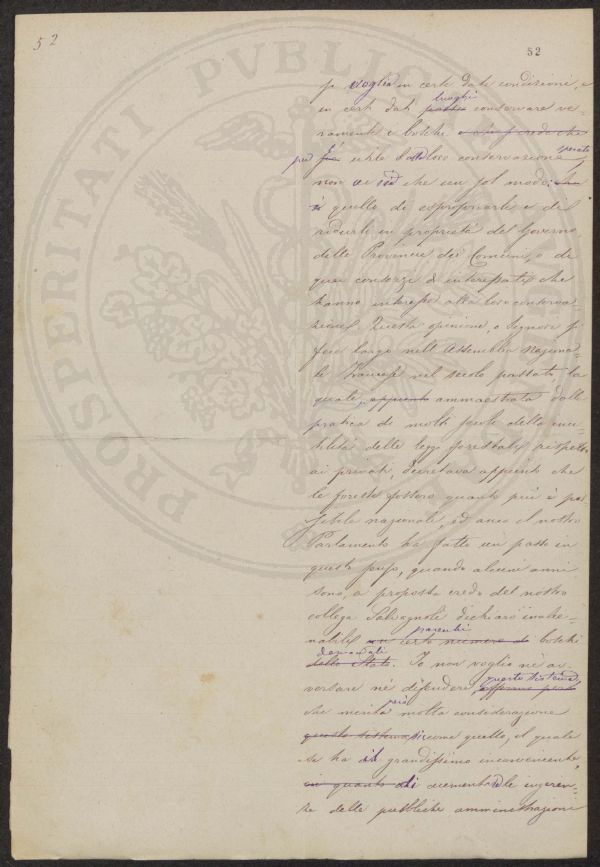 52
52
si voglia in certe date condizioni, e
in certi dati luoghi conservare ve-
ramente i boschi
però è utile la loro conservazione sperate,
non vi sia che un sol modo:
è quello di espropriarli e di
ridurli in proprietà del Governo
delle Provincie dei Comuni, o di
quei consorzi d'interessati che
hanno interesse alla loro conserva-
zione. Questa opinione, o Signori si
fece largo nell'Assemblea Naziona-
le Francese nel secolo passato, la
quale, appunto ammaestrata dalla
pratica di molti secoli della inu-
tilità delle leggi forestali rispetto
ai privati, decretava appunto che
le foreste fossero quanto più è pos-
sibile nazionali, ed anco il nostro
Parlamento ha fatto un passo in
questo senso, quando alcuni anni
sono, a proposta credo del nostro
collega Salvagnoli dichiarò inalie-
nabili un certo numero di boschi
demaniali
dello Stato. Io non voglio nè av-
versare nè difendere questo sistema,
che merita però molta considerazione
questo sistema siccome quello, il quale
se ha il grandissimo inconveniente,
in quanto di aumentare le ingeren-
ze delle pubbliche amministrazioni
PROSPERITATI PVBLICAE